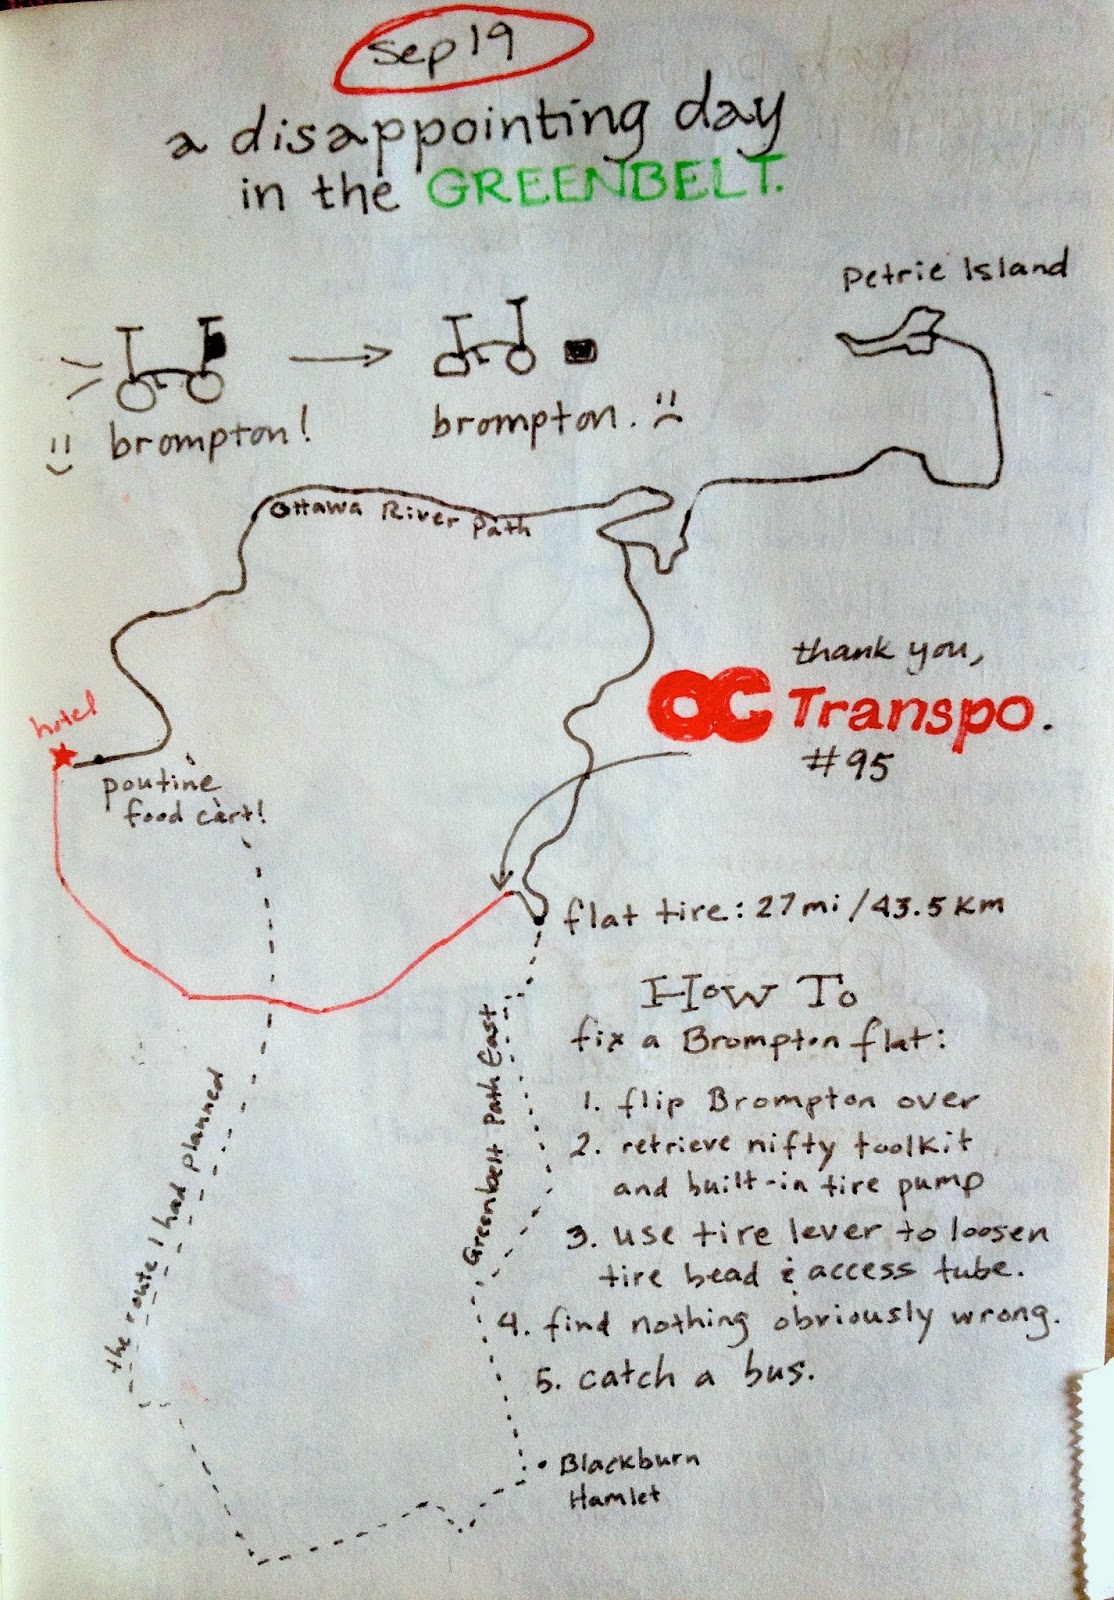 Sep 19
a disappointing day
in the GREENBELT.
Petrie Island
brompton!
brompton.
Ottawa River Path
thank you,
OC Transpo.
#95
hotel
poutine
food cart!
flat tire: 27mi/43.5km
How To
fix a Brompton flat:
1. flip Brompton over
2. retrieve nifty toolkit
and built-in tire pump
3. use tire lever to loosen
tire bead & access tube.
4. find nothing obviously wrong.
5. catch a bus.
Greenbelt Path East
the route I had planned
Blackburn
Hamlet